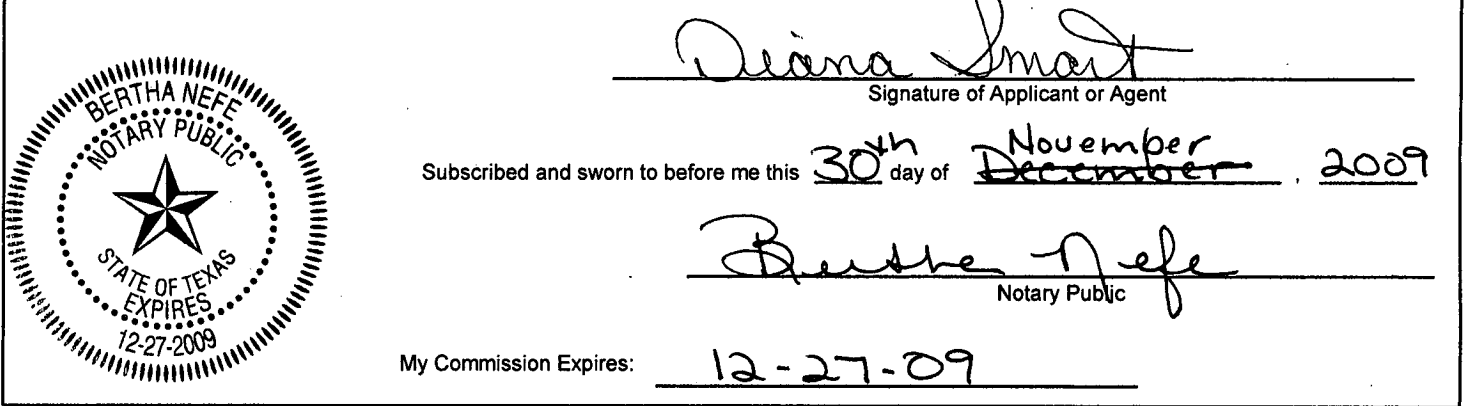 BERTHA NEFE
NOTARY PUBLIC
STATE OF TEXAS
EXPIRES
12-27-2009
Diana Smart
Signature of Applicant or Agent
November
Subscribed and sworn to before me this 30th day of December, 2009
Bertha Nefe
Notary Public
My Commission Expires: 12-27-09